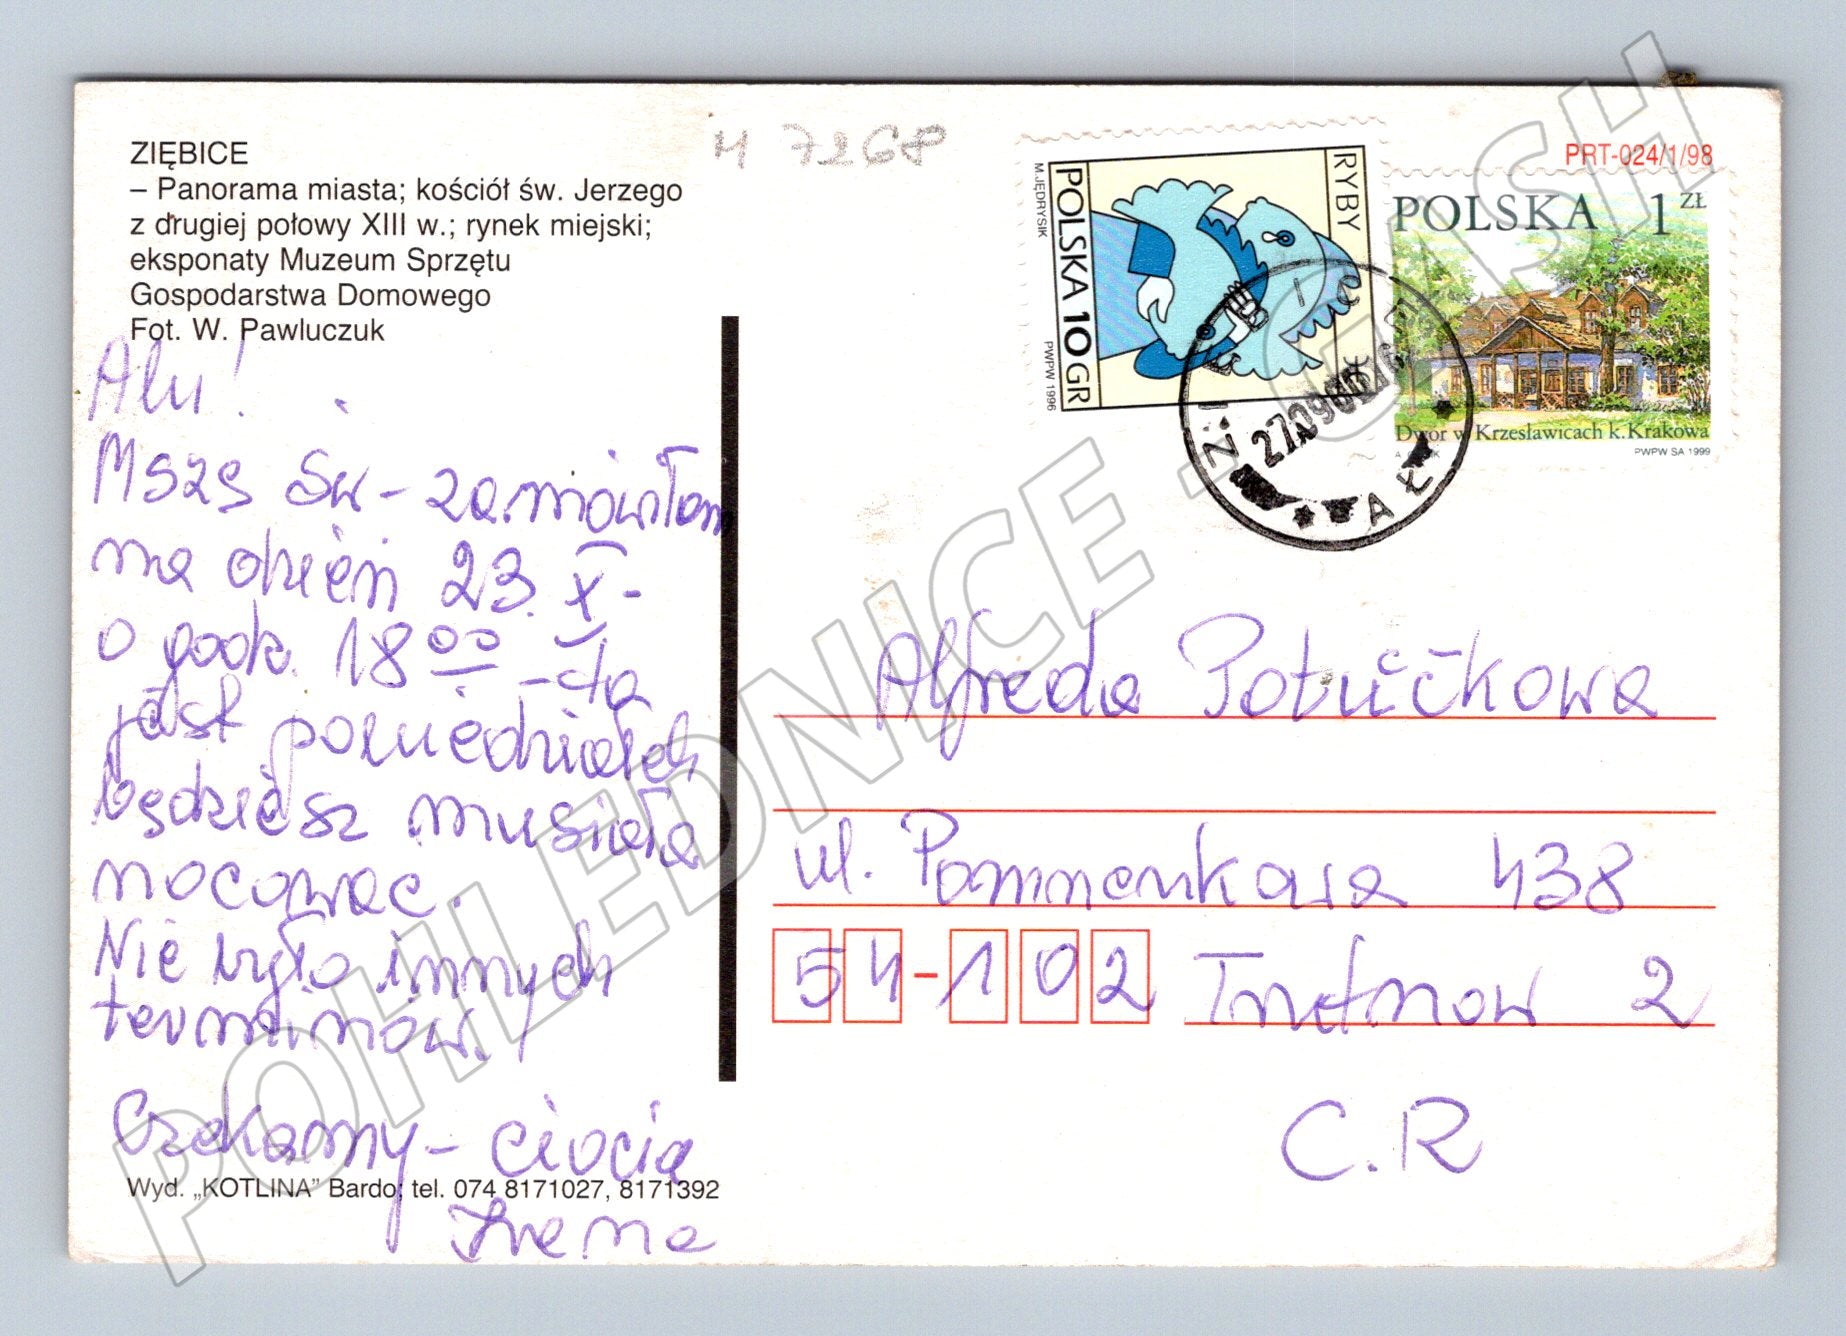 ZIĘBICE
– Panorama miasta; kościół św. Jerzego
z drugiej połowy XIII w.; rynek miejski;
eksponaty Muzeum Sprzętu
Gospodarstwa Domowego
Fot. W. Pawluczuk
Alu!
Mszę św – zamówiłam
na dzień 23. X –
o godz. 18 00 – to
jest poniedziałek
będziesz musiała
nocować.
Nie było innych
terminów.
Czekamy – ciocia
Irena
Wyd. „KOTLINA” Bardo; tel. 074 8171027, 8171392
RYBY
POLSKA 10 GR
M.JĘDRYSIK
PWPW 1996
PRT-024/1/98
POLSKA 1 ZŁ
Dwór w Krzesławicach k. Krakowa
PWPW SA 1999
Alfreda Potućkowa
ul. Pomnenkova 438
54-102 Trutnow 2
C.R
POHLEDNICE - CASH